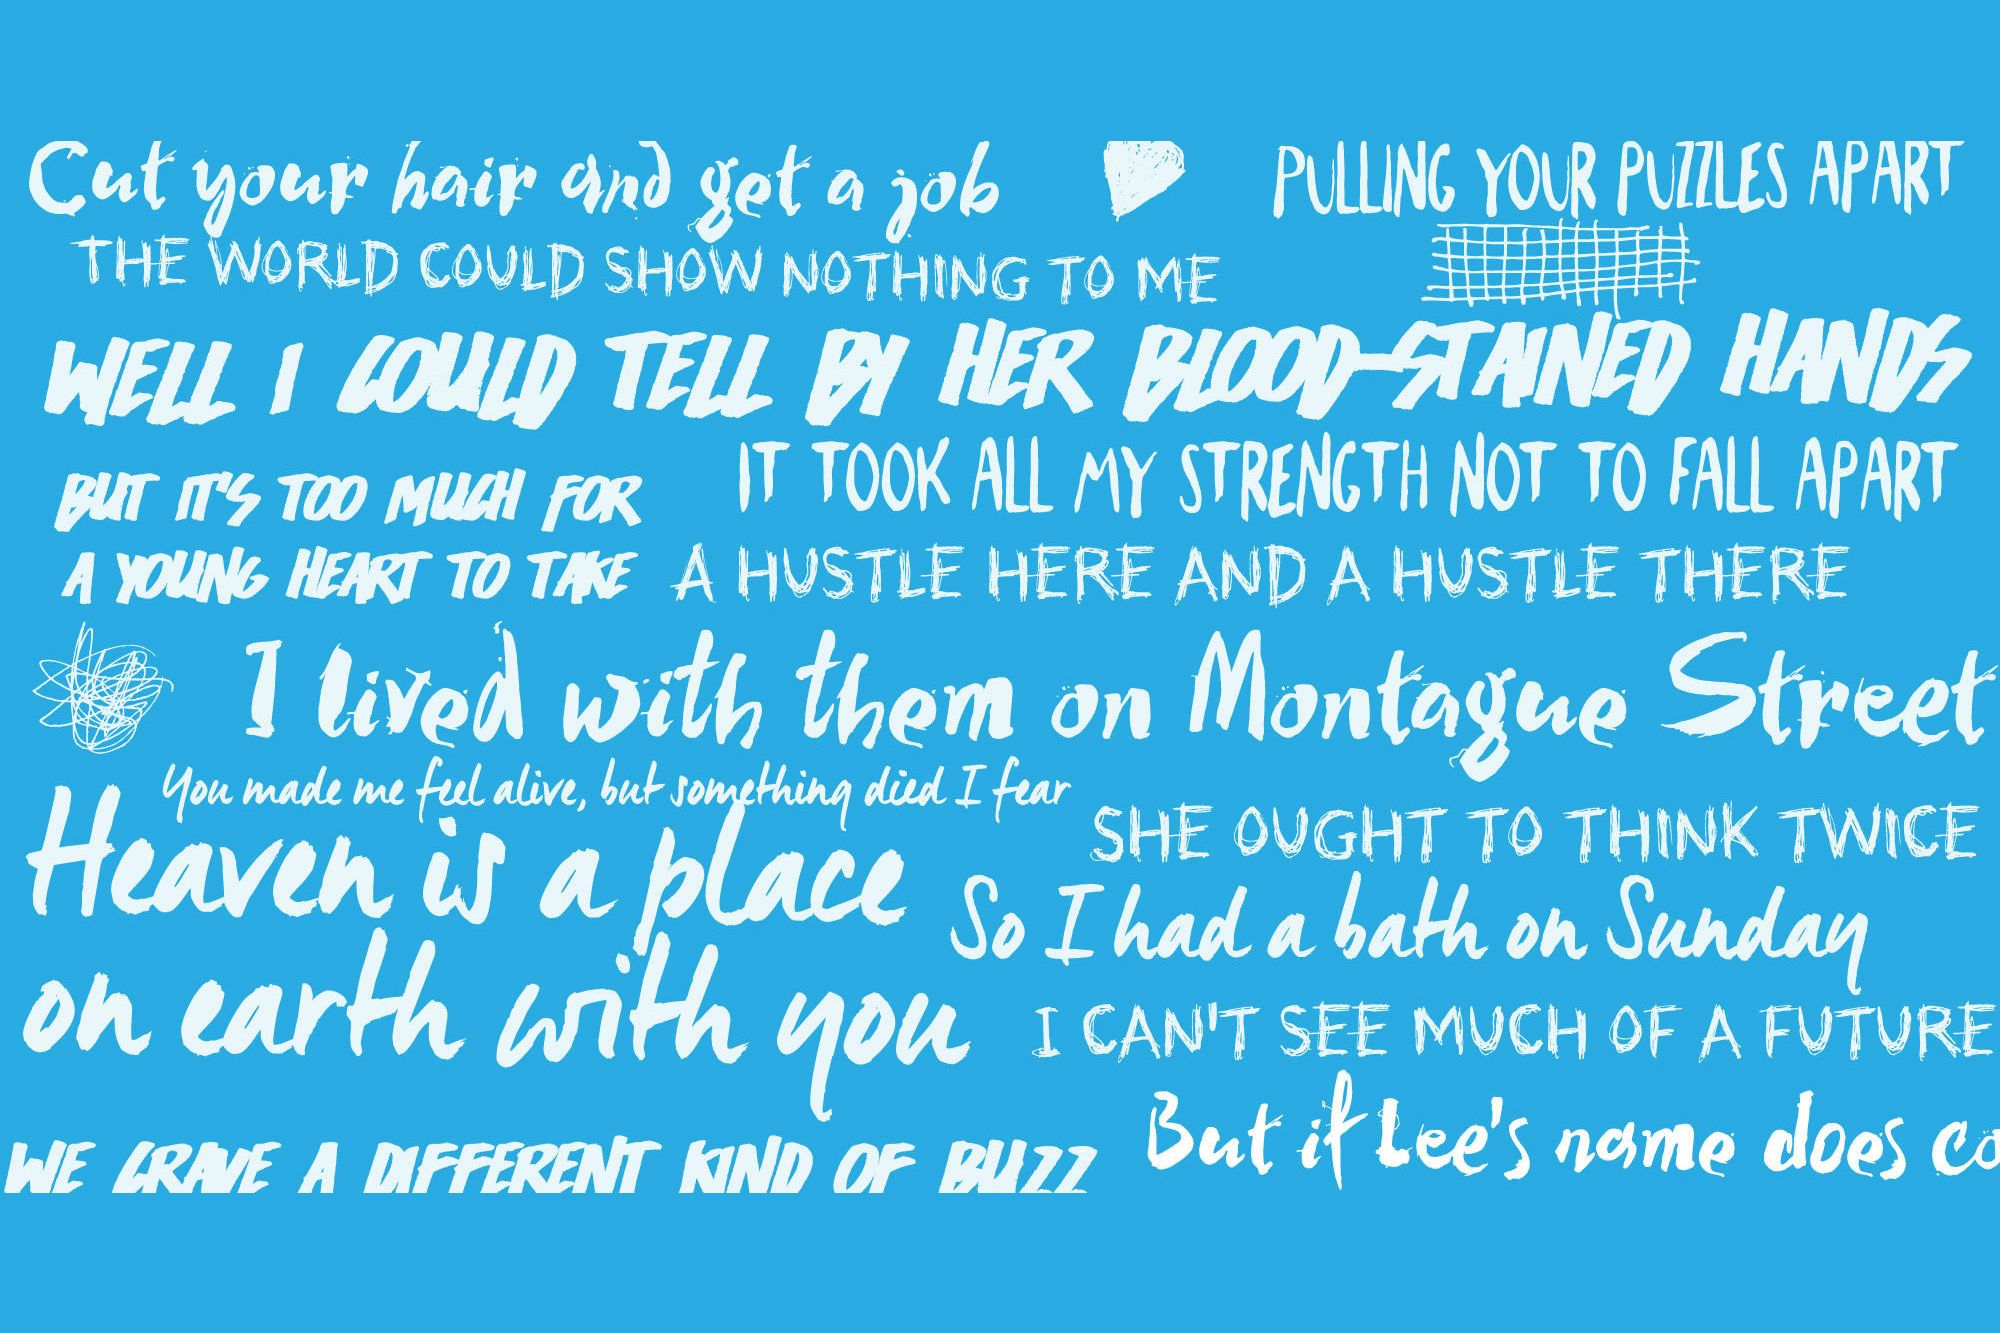 Cut your hair and get a job
PULLING YOUR PUZZLES APART
THE WORLD COULD SHOW NOTHING TO ME
WELL I COULD TELL BY HER BLOOD-STAINED HANDS
IT TOOK ALL MY STRENGTH NOT TO FALL APART
BUT IT'S TOO MUCH FOR
A YOUNG HEART TO TAKE
A HUSTLE HERE AND A HUSTLE THERE
I lived with them on Montague Street
You made me feel alive, but something died I fear
SHE OUGHT TO THINK TWICE
Heaven is a place
on earth with you
So I had a bath on Sunday
I CAN'T SEE MUCH OF A FUTURE
WE CRAVE A DIFFERENT KIND OF BUZZ
But if Lee's name does co